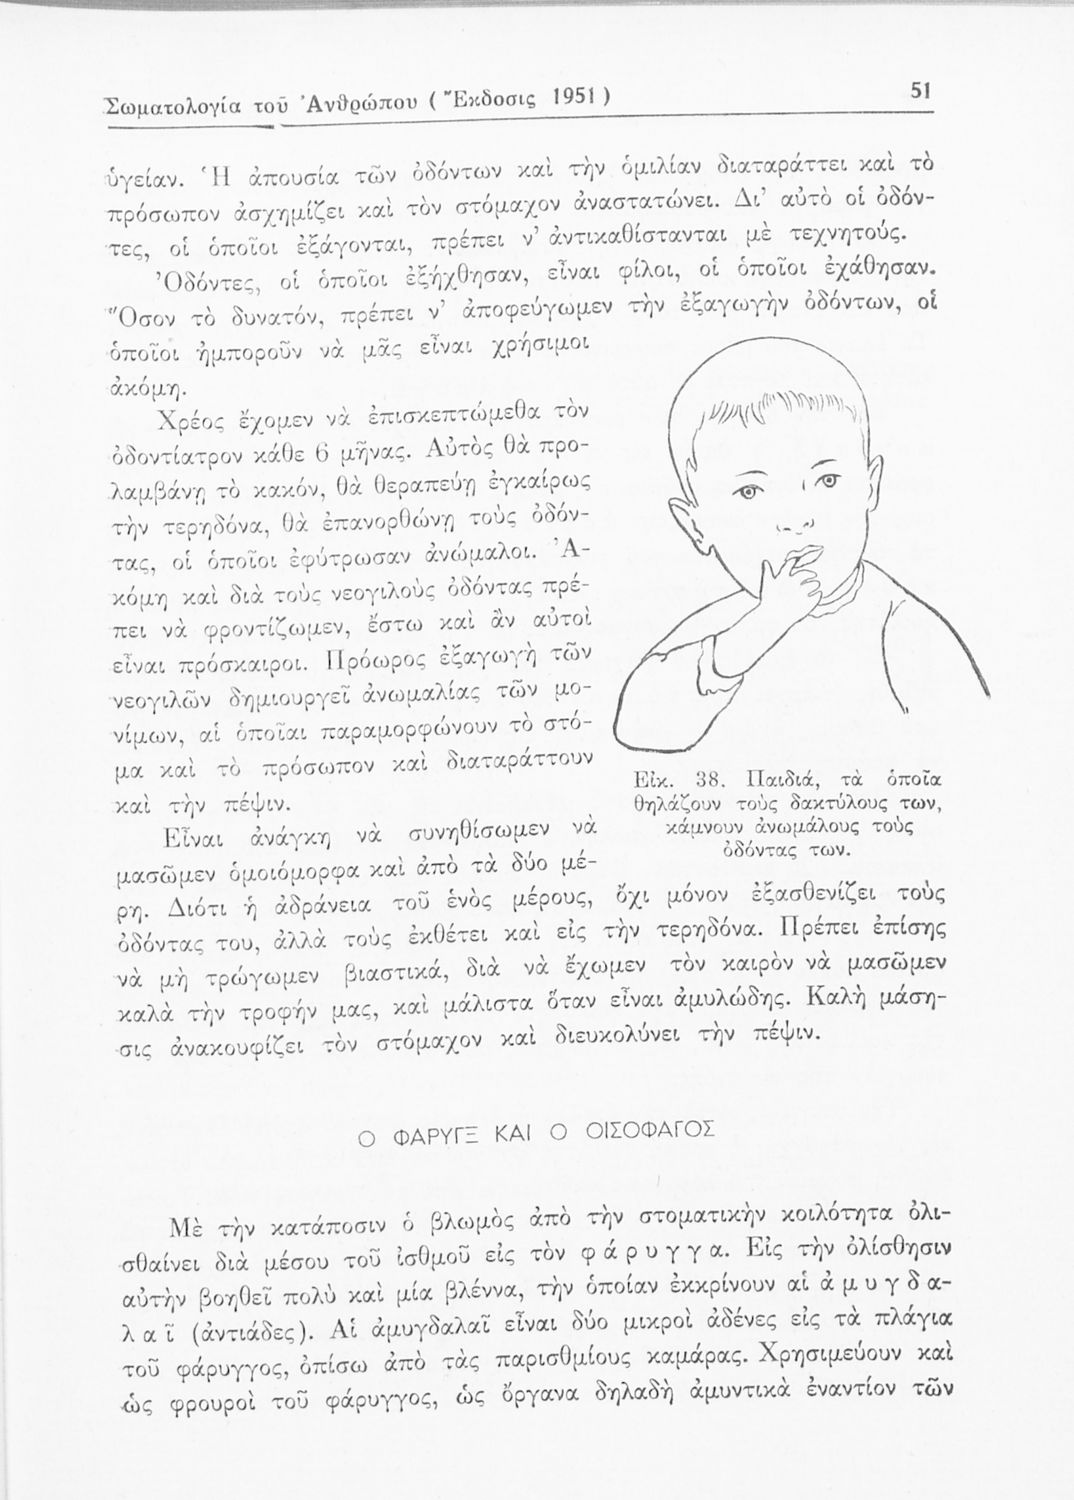 Σωματολογία τοῦ Ἀνθρώπου (Ἔκδοσις 1951)
51
ὑγείαν. Ἡ ἀπουσία τῶν ὀδόντων καὶ τὴν ὁμιλίαν διαταράττει καὶ τὸ
πρόσωπον ἀσχημίζει καὶ τὸν στόμαχον ἀναστατώνει. Δι’ αὐτὸ οἱ ὀδόν-
τες, οἱ ὁποῖοι ἐξάγονται, πρέπει ν’ ἀντικαθίστανται μὲ τεχνητούς.
Ὀδόντες, οἱ ὁποῖοι ἐξήχθησαν, εἶναι φίλοι, οἱ ὁποῖοι ἐχάθησαν.
Ὅσον τὸ δυνατόν, πρέπει ν’ ἀποφεύγωμεν τὴν ἐξαγωγὴν ὀδόντων, οἱ
ὁποῖοι ἠμποροῦν νὰ μᾶς εἶναι χρήσιμοι
ἀκόμη.
Χρέος ἔχομεν νὰ ἐπισκεπτώμεθα τὸν
ὀδοντίατρον κάθε 6 μῆνας. Αὐτὸς θὰ προ-
λαμβάνῃ τὸ κακόν, θὰ θεραπεύῃ ἐγκαίρως
τὴν τερηδόνα, θὰ ἐπανορθώνῃ τοὺς ὀδόν-
τας, οἱ ὁποῖοι ἐφύτρωσαν ἀνώμαλοι. Ἀ-
κόμη καὶ διὰ τοὺς νεογιλοὺς ὀδόντας πρέ-
πει νὰ φροντίζωμεν, ἔστω καὶ ἂν αὐτοὶ
εἶναι πρόσκαιροι. Πρόωρος ἐξαγωγὴ τῶν
νεογιλῶν δημιουργεῖ ἀνωμαλίας τῶν μο-
νίμων, αἱ ὁποῖαι παραμορφώνουν τὸ στό-
μα καὶ τὸ πρόσωπον καὶ διαταράττουν
καὶ τὴν πέψιν.
Εἰκ. 38. Παιδιά, τὰ ὁποῖα
θηλάζουν τοὺς δακτύλους των,
κάμνουν ἀνωμάλους τοὺς
ὀδόντας των.
Εἶναι ἀνάγκη νὰ συνηθίσωμεν νὰ
μασῶμεν ὁμοιόμορφα καὶ ἀπὸ τὰ δύο μέ-
ρη. Διότι ἡ ἀδράνεια τοῦ ἑνὸς μέρους, ὄχι μόνον ἐξασθενίζει τοὺς
ὀδόντας του, ἀλλὰ τοὺς ἐκθέτει καὶ εἰς τὴν τερηδόνα. Πρέπει ἐπίσης
νὰ μὴ τρώγωμεν βιαστικά, διὰ νὰ ἔχωμεν τὸν καιρὸν νὰ μασῶμεν
καλὰ τὴν τροφήν μας, καὶ μάλιστα ὅταν εἶναι ἀμυλώδης. Καλὴ μάση-
σις ἀνακουφίζει τὸν στόμαχον καὶ διευκολύνει τὴν πέψιν.
Ο ΦΑΡΥΓΞ ΚΑΙ Ο ΟΙΣΟΦΑΓΟΣ
Μὲ τὴν κατάποσιν ὁ βλωμὸς ἀπὸ τὴν στοματικὴν κοιλότητα ὀλι-
σθαίνει διὰ μέσου τοῦ ἰσθμοῦ εἰς τὸν φ ά ρ υ γ γ α. Εἰς τὴν ὀλίσθησιν
αὐτὴν βοηθεῖ πολὺ καὶ μία βλέννα, τὴν ὁποίαν ἐκκρίνουν αἱ ἀ μ υ γ δ α-
λ α ῖ (ἀντιάδες). Αἱ ἀμυγδαλαῖ εἶναι δύο μικροὶ ἀδένες εἰς τὰ πλάγια
τοῦ φάρυγγος, ὀπίσω ἀπὸ τὰς παρισθμίους καμάρας. Χρησιμεύουν καὶ
ὡς φρουροὶ τοῦ φάρυγγος, ὡς ὄργανα δηλαδὴ ἀμυντικὰ ἐναντίον τῶν